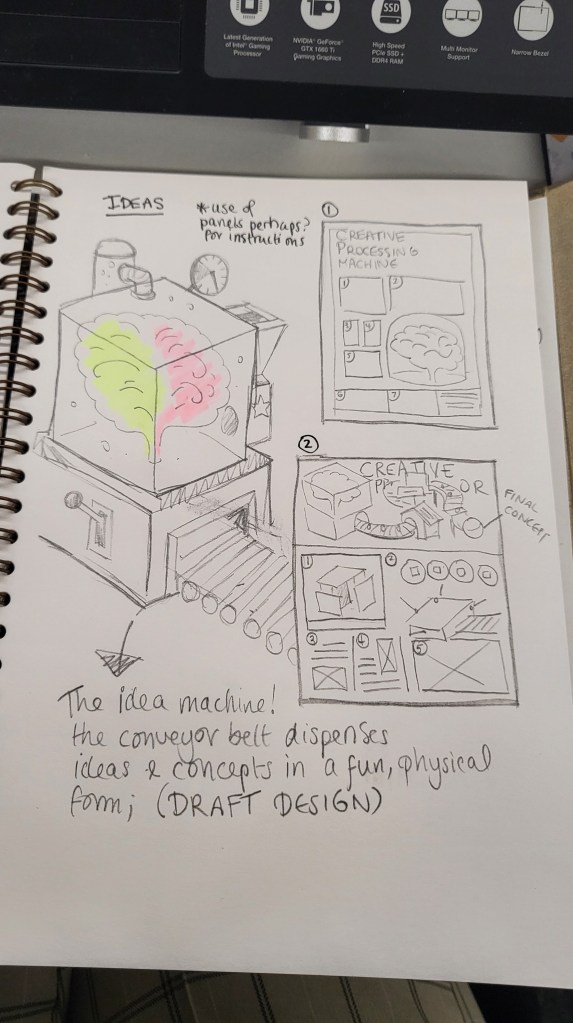 Latest Generation
of Intel® Gaming
Processor
NVIDIA® GeForce™
GTX 1660 Ti
Gaming Graphics
SSD
High Speed
PCIe SSD +
DDR4 RAM
Multi Monitor
Support
Narrow Bezel
IDEAS
*use of
panels perhaps?
for instructions
1
CREATIVE
PROCESSING
MACHINE
1
2
3
4
5
6
7
2
CREATIVE
OR
FINAL
CONCEPT
1
2
3
4
5
The idea machine!
the conveyor belt dispenses
ideas & concepts in a fun, physical
form; (DRAFT DESIGN)